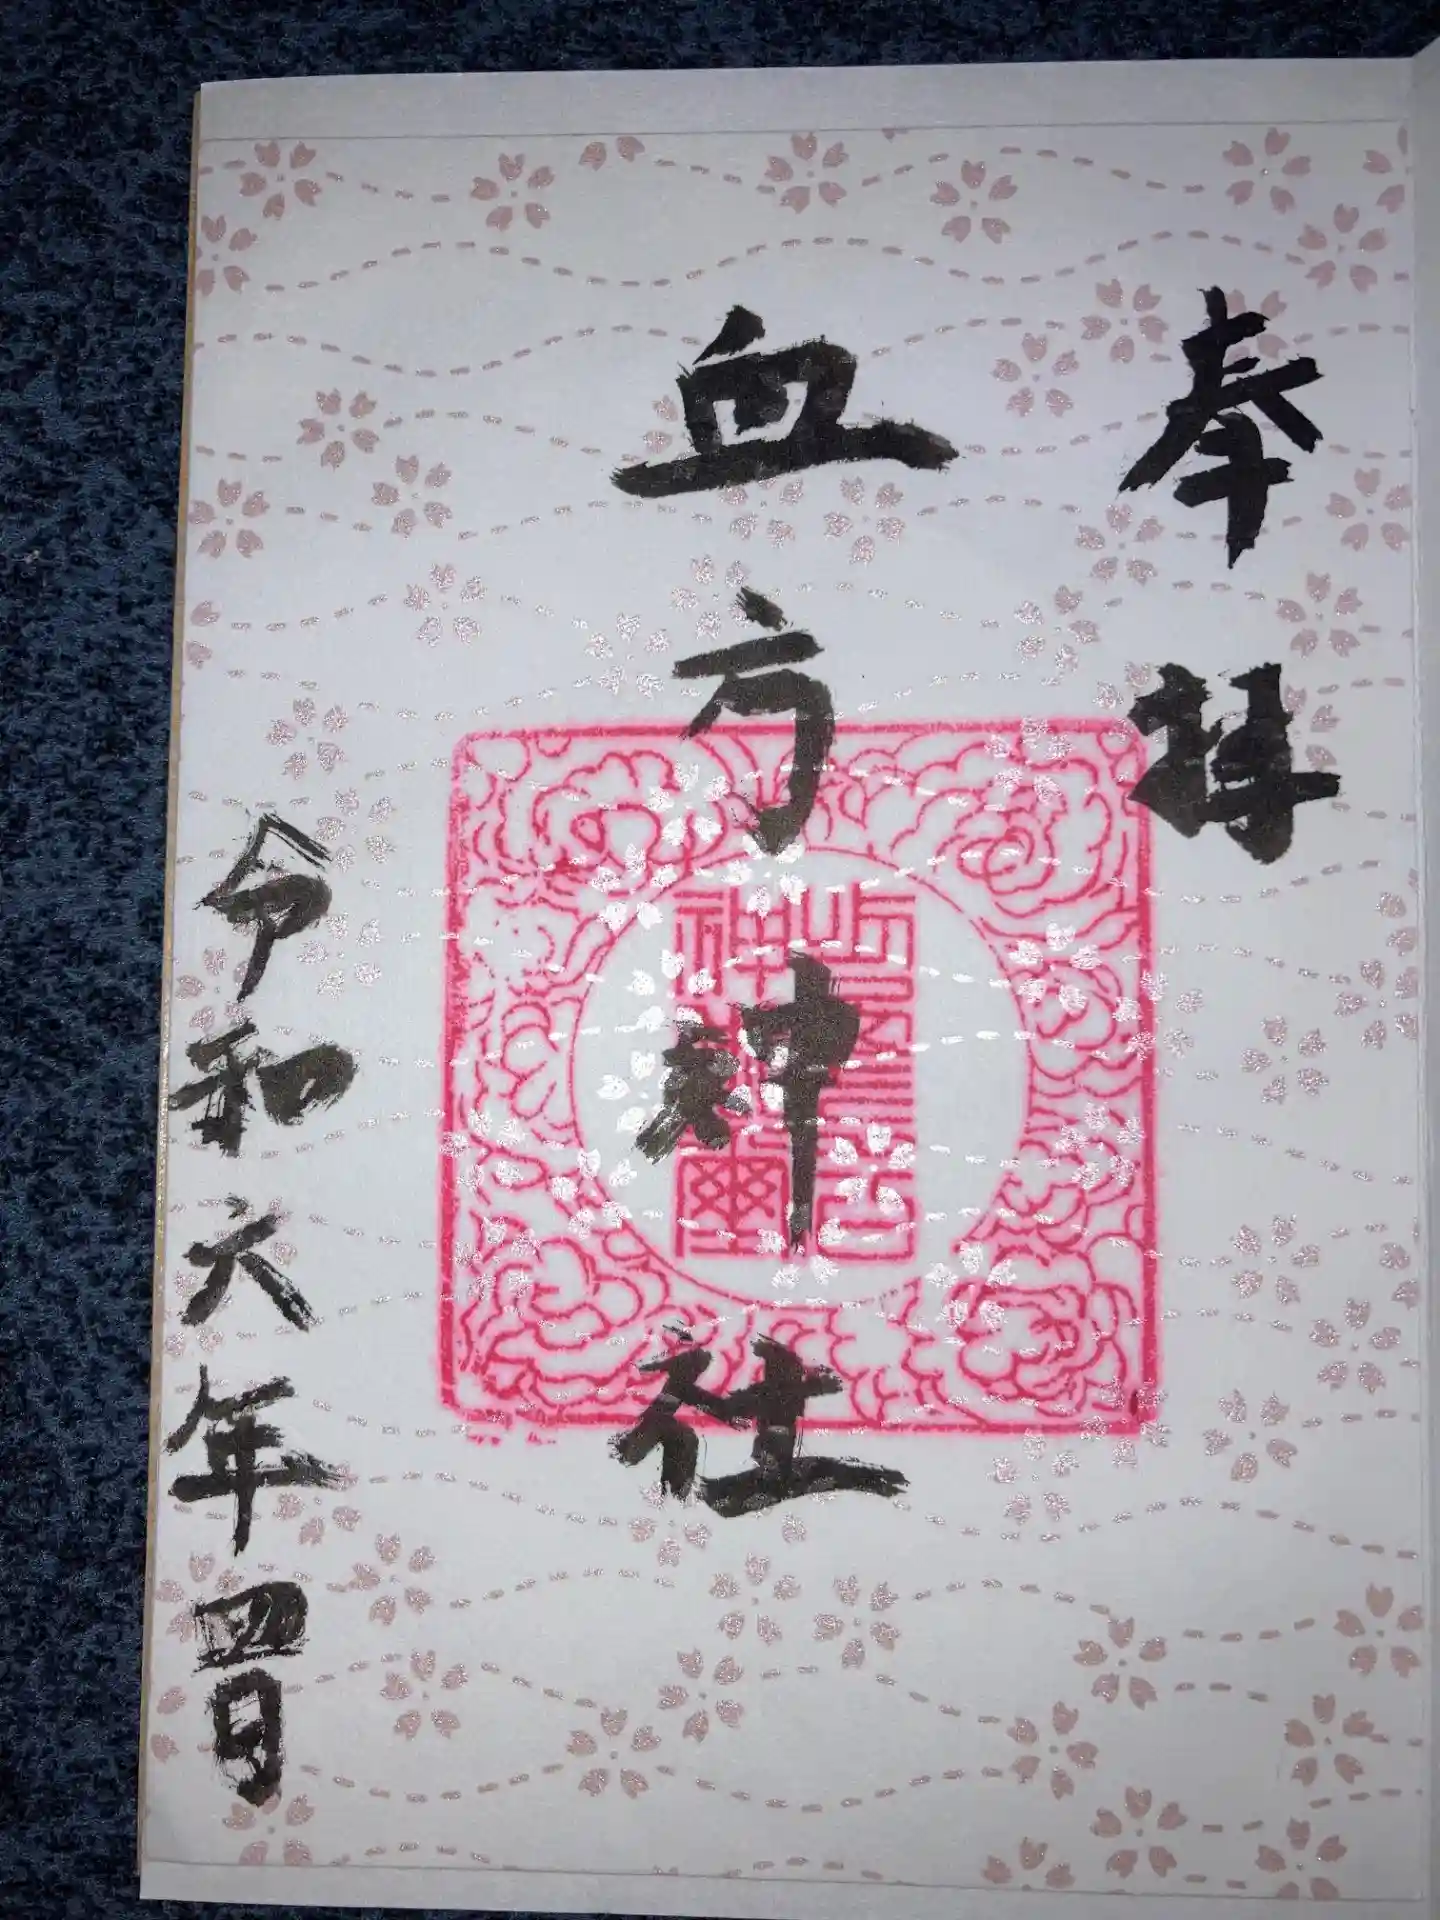 奉拝
血方神社
令和六年四月